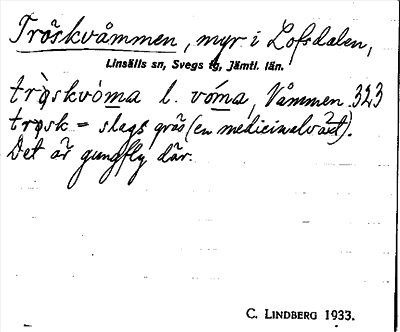 Tröskvåmmen, myr i Lofsdalen,
Linsälls sn, Svegs tg, Jämtl. län.
trǫ̀skvóma l. vóma, Våmmen 323
trǫsk = slags gräs (en medicinalväxt).
Det är gungfly där.
C. LINDBERG 1933.